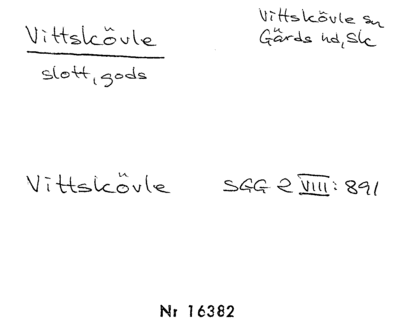 Vittskövle
slott, gods
Vittskövle sn
Gärds hd, Sk
Vittskövle SGG 2 VIII: 891
Nr 16382